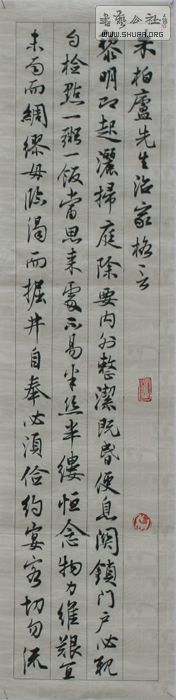 書藝公社
www.shura.org
朱柏廬先生治家格言
黎明即起灑掃庭除要內外整潔既昏便息關鎖門戶必親
自檢點一粥一飯當思來處不易半絲半縷恒念物力維艱宜
未雨而綢繆毋臨渴而掘井自奉必須儉約宴客切勿流